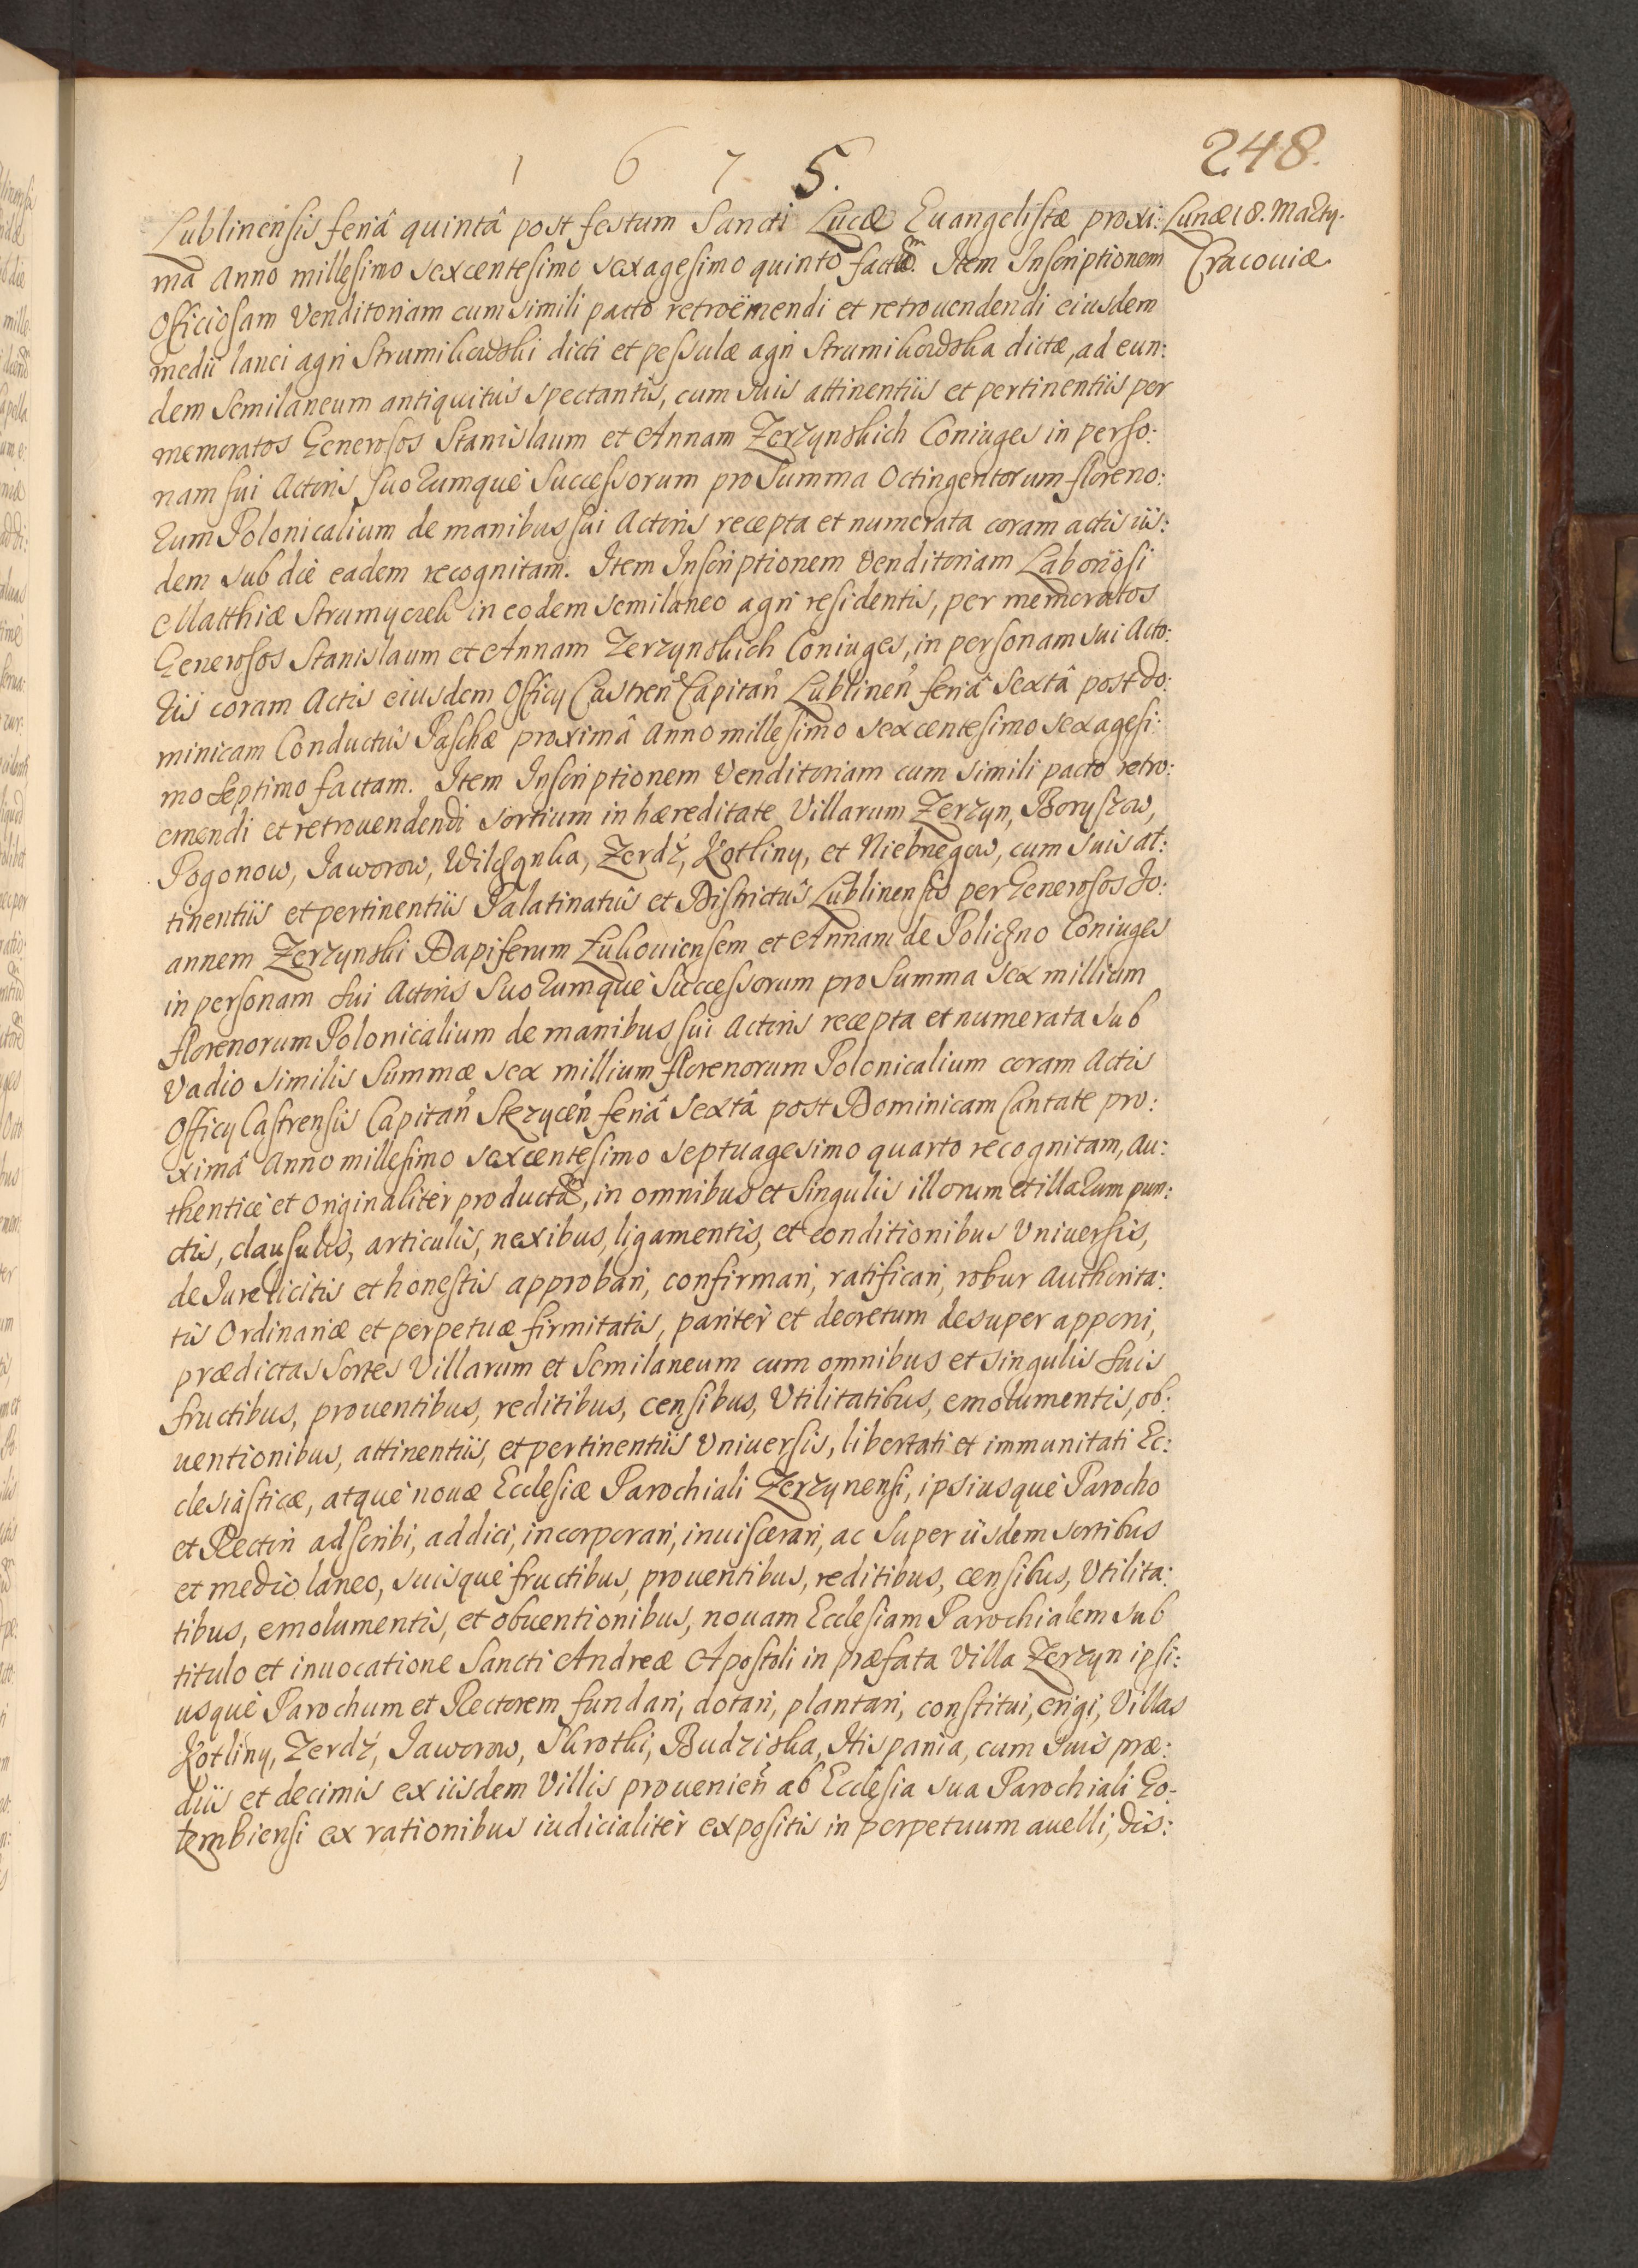 1 6 7 5.
248.
Lunæ 18. Marty.
Cracouiæ.
Lublinensis feriâ quintâ post festum Sancti Lucæ Euangelistæ proxi:
mâ Anno millesimo sexcentesimo sexagesimo quinto factam. Item Inscriptionem
Officiosam Venditoriam cum simili pacto retroëmendi et retrouendendi eiusdem
medii lanei agri Strumikowski dicti et pessulæ agri Strumikowska dictæ, ad eun:
dem Semilaneum antiquitùs spectantis, cum suis attinentiis et pertinentiis per
memoratos Generosos Stanislaum et Annam Zerzynskich Coniuges in perso:
nam sui Actoris suorumque Successorum pro Summa Octingentorum floreno:
rum Polonicalium de manibus sui Actoris recepta et numerata coram actis iis:
dem sub die eadem recognitam. Item Inscriptionem Venditoriam Laboriosi
Matthiæ Strumyczek in eodem semilaneo agri residentis, per memoratos
Generosos Stanislaum et Annam Zerzynskich Coniuges, in personam sui Acto:
ris coram Actis eiusdem Officy Castren Capitan Lublinen feriâ Sextâ post Do:
minicam Conductus Paschæ proximâ Anno millesimo sexcentesimo sexagesi:
mo septimo factam. Item Inscriptionem Venditoriam cum simili pacto retro:
emendi et retrouendendi sortium in hæreditate Villarum Zerzyn, Boryszow,
Pogonow, Jaworow, Wilczanka, Zerdź, Kotliny, et Niebrzegow, cum suis at:
tinentiis et pertinentiis Palatinatûs et Districtûs Lublinensis per Generosos Jo:
annem Zerzynski Dapiferum Łukouiensem et Annam de Policzno Coniuges
in personam sui Actoris suorumque Successorum pro Summa sex millium
florenorum Polonicalium de manibus sui Actoris recepta et numerata sub
Vadio similis Summæ sex millium florenorum Polonicalium coram Actis
Officy Castrensis Capitan Stezycen feriâ Sextâ post Dominicam Cantate pro:
ximâ Anno millesimo sexcentesimo septuagesimo quarto recognitam, Au:
thenticè et Originaliter producta, in omnibus et singulis illorum et illarum pun:
ctis, clausulis, articulis, nexibus, ligamentis, et conditionibus Vniuersis,
de Jure licitis et honestis approbari, confirmari, ratificari, robur Authorita:
tis Ordinariæ et perpetuæ firmitatis, pariter et decretum desuper apponi,
prædictas sortes Villarum et Semilaneum cum omnibus et singulis suis
fructibus, prouentibus, reditibus, censibus, Vtilitatibus, emolumentis, ob:
uentionibus, attinentiis, et pertinentiis Vniuersis, libertati et immunitati Ec:
clesiasticæ, atque nouæ Ecclesiæ Parochiali Zerzynensi, ipsiusque Parocho
et Rectori adscribi, addici, incorporari, inuiscerari, ac super iisdem sortibus
et medio laneo, suisque fructibus, prouentibus, reditibus, censibus, Vtilita:
tibus, emolumentis, et obuentionibus, nouam Ecclesiam Parochialem sub
titulo et inuocatione Sancti Andreæ Apostoli in præfata Villa Zerzyn ipsi:
usque Parochum et Rectorem fundari, dotari, plantari, constitui, erigi, Villas
Kotliny, Zerdź, Jaworow, Skrotki, Budziska, Hispania, cum suis præ:
diis et decimis ex iisdem Villis prouenien ab Ecclesia sua Parochiali Go-
łembiensi ex rationibus iudicialiter expositis in perpetuum auelli, dis: